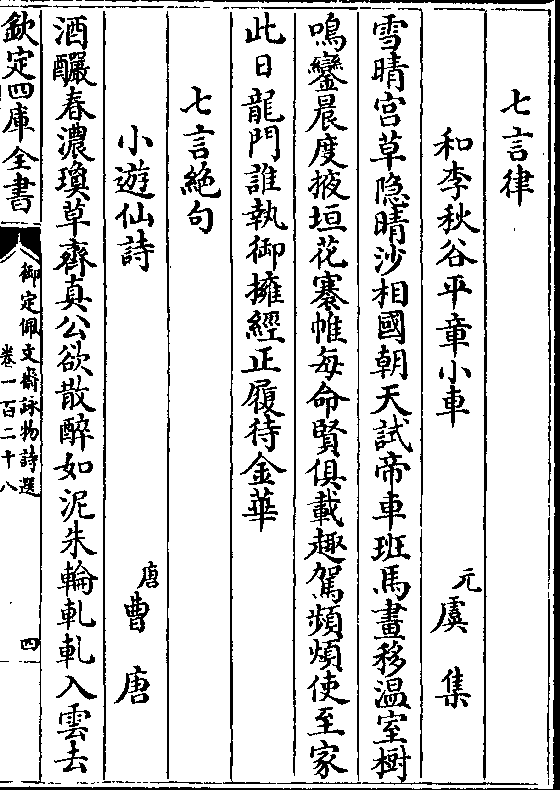 七言律
和李秋谷平章小車
元虞集
雪晴宫草隐晴沙相國朝天試帝車班馬畫移温室樹
鳴鑾晨度掖垣花褰帷每命賢俱載趣駕頻煩使至家
此日龍門誰執御擁經正履待金華
七言絶句
小遊仙詩
唐曹唐
酒釅春濃瓊草齊真公欲散醉如泥朱輪軋軋入雲去
欽定四庫全書
御定佩文齋詠物詩選
卷一百二十八
四